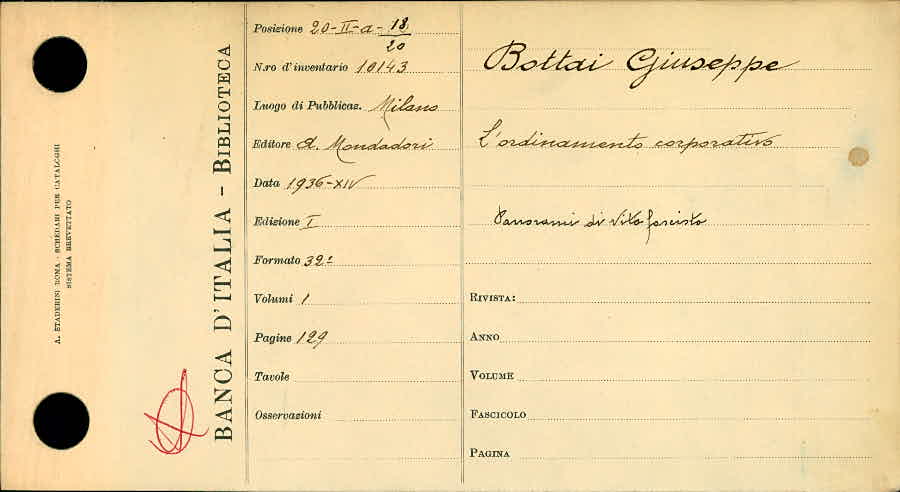 A. STADERINI ROMA - SCHEDARI PER CATALOGHI
SISTEMA BREVETTATO
BANCA D'ITALIA - BIBLIOTECA
Posizione 20-II-a-18/20
N.ro d'inventario 10143
Luogo di Pubblicaz. Milano
Editore A. Mondadori
Data 1936-XIV
Edizione I
Formato 32º
Volumi 1
Pagine 129
Tavole
Osservazioni
Bottai Giuseppe
L'ordinamento corporativo
Panorami di vita fascista
RIVISTA:
ANNO
VOLUME
FASCICOLO
PAGINA